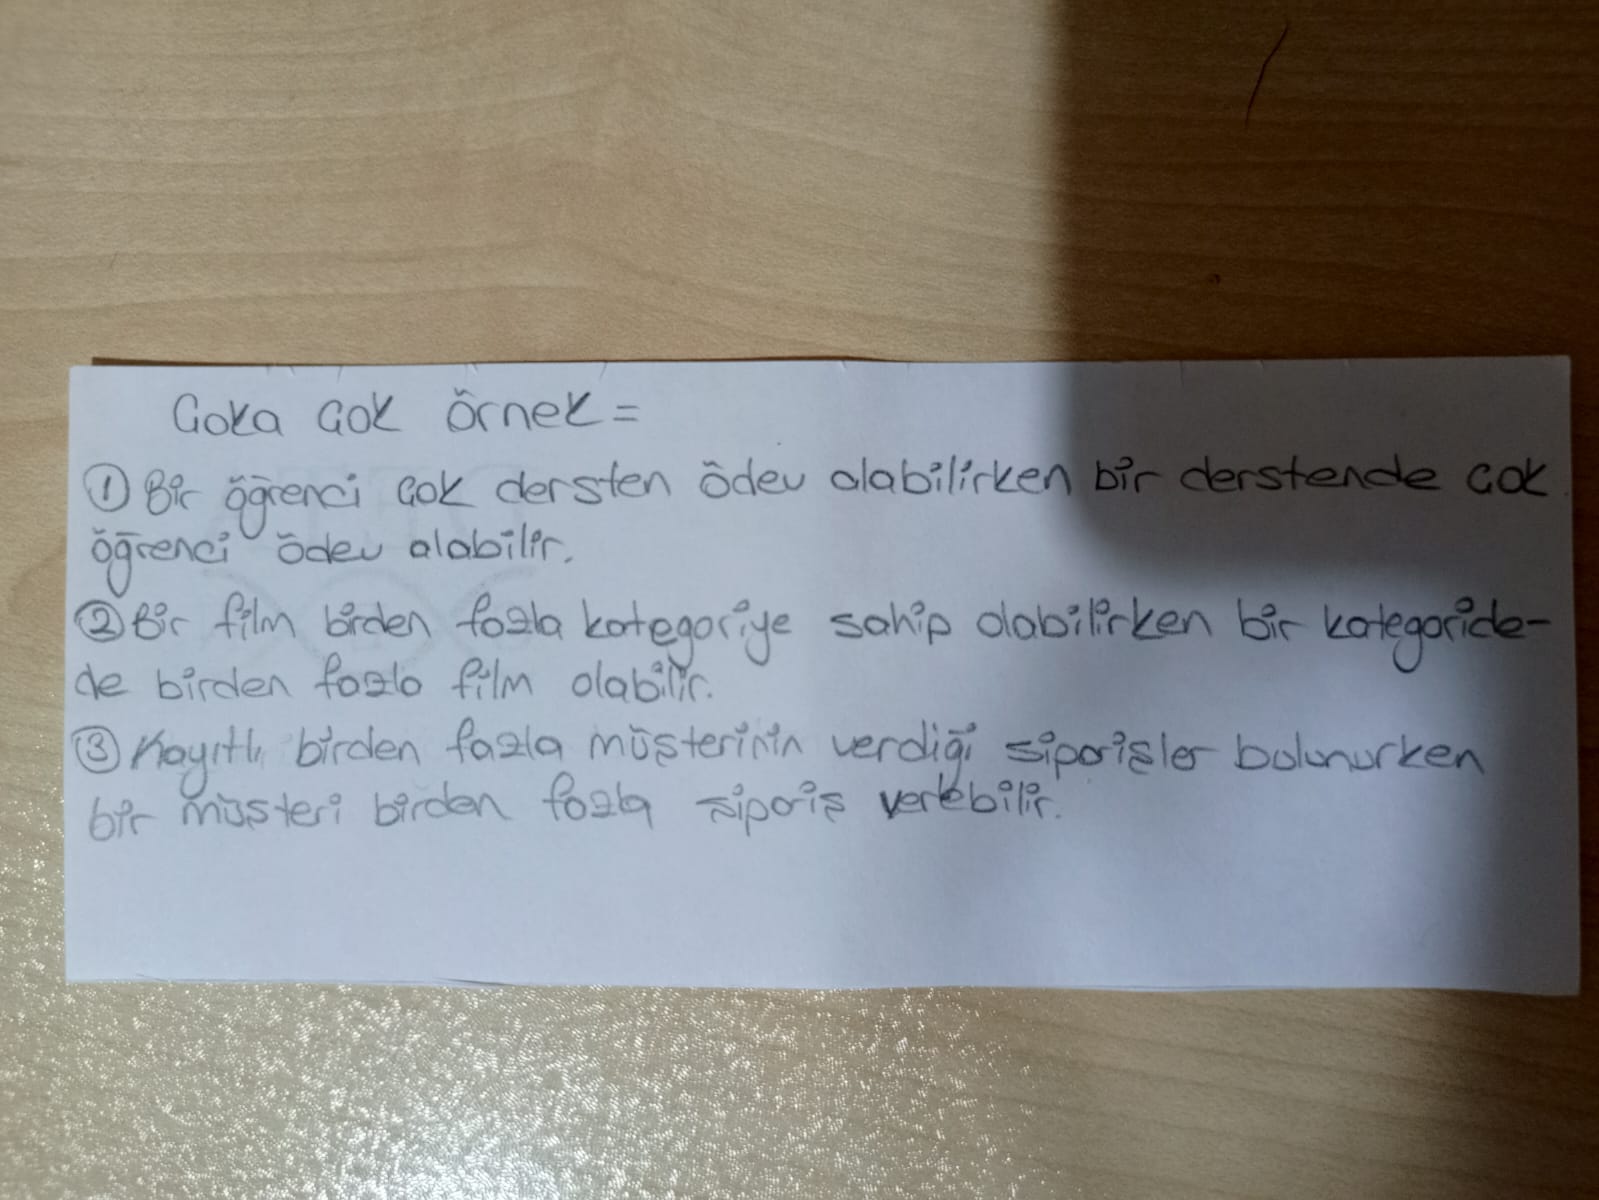 Çoka çok örnek =
① Bir öğrenci çok dersten ödev alabilirken bir derstende çok
öğrenci ödev alabilir.
② Bir film birden fazla kategoriye sahip olabilirken bir kategoride-
de birden fazla film olabilir.
③ Kayıtlı birden fazla müşterinin verdiği siparişler bulunurken
bir müşteri birden fazla sipariş verebilir.